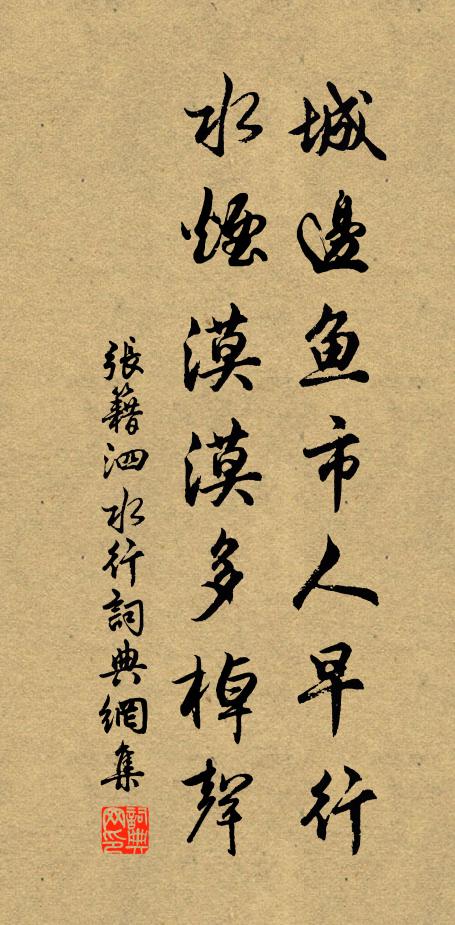 城邊魚市人早行
水煙漠漠多棹聲
張籍泗水行詞典網集
詞典網印